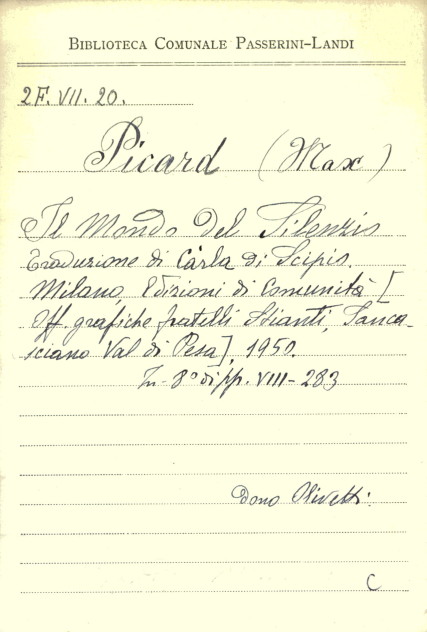 BIBLIOTECA COMUNALE PASSERINI-LANDI
2F. VII. 20.
Picard (Max)
Il Mondo del Silenzio
Traduzione di Carla di Scipio.
Milano, Edizioni di Comunità [
Off. grafiche fratelli Stianti, Sanca-
sciano Val di Pesa], 1950.
In-8° di pp. VIII-283
Dono Olivetti.
C